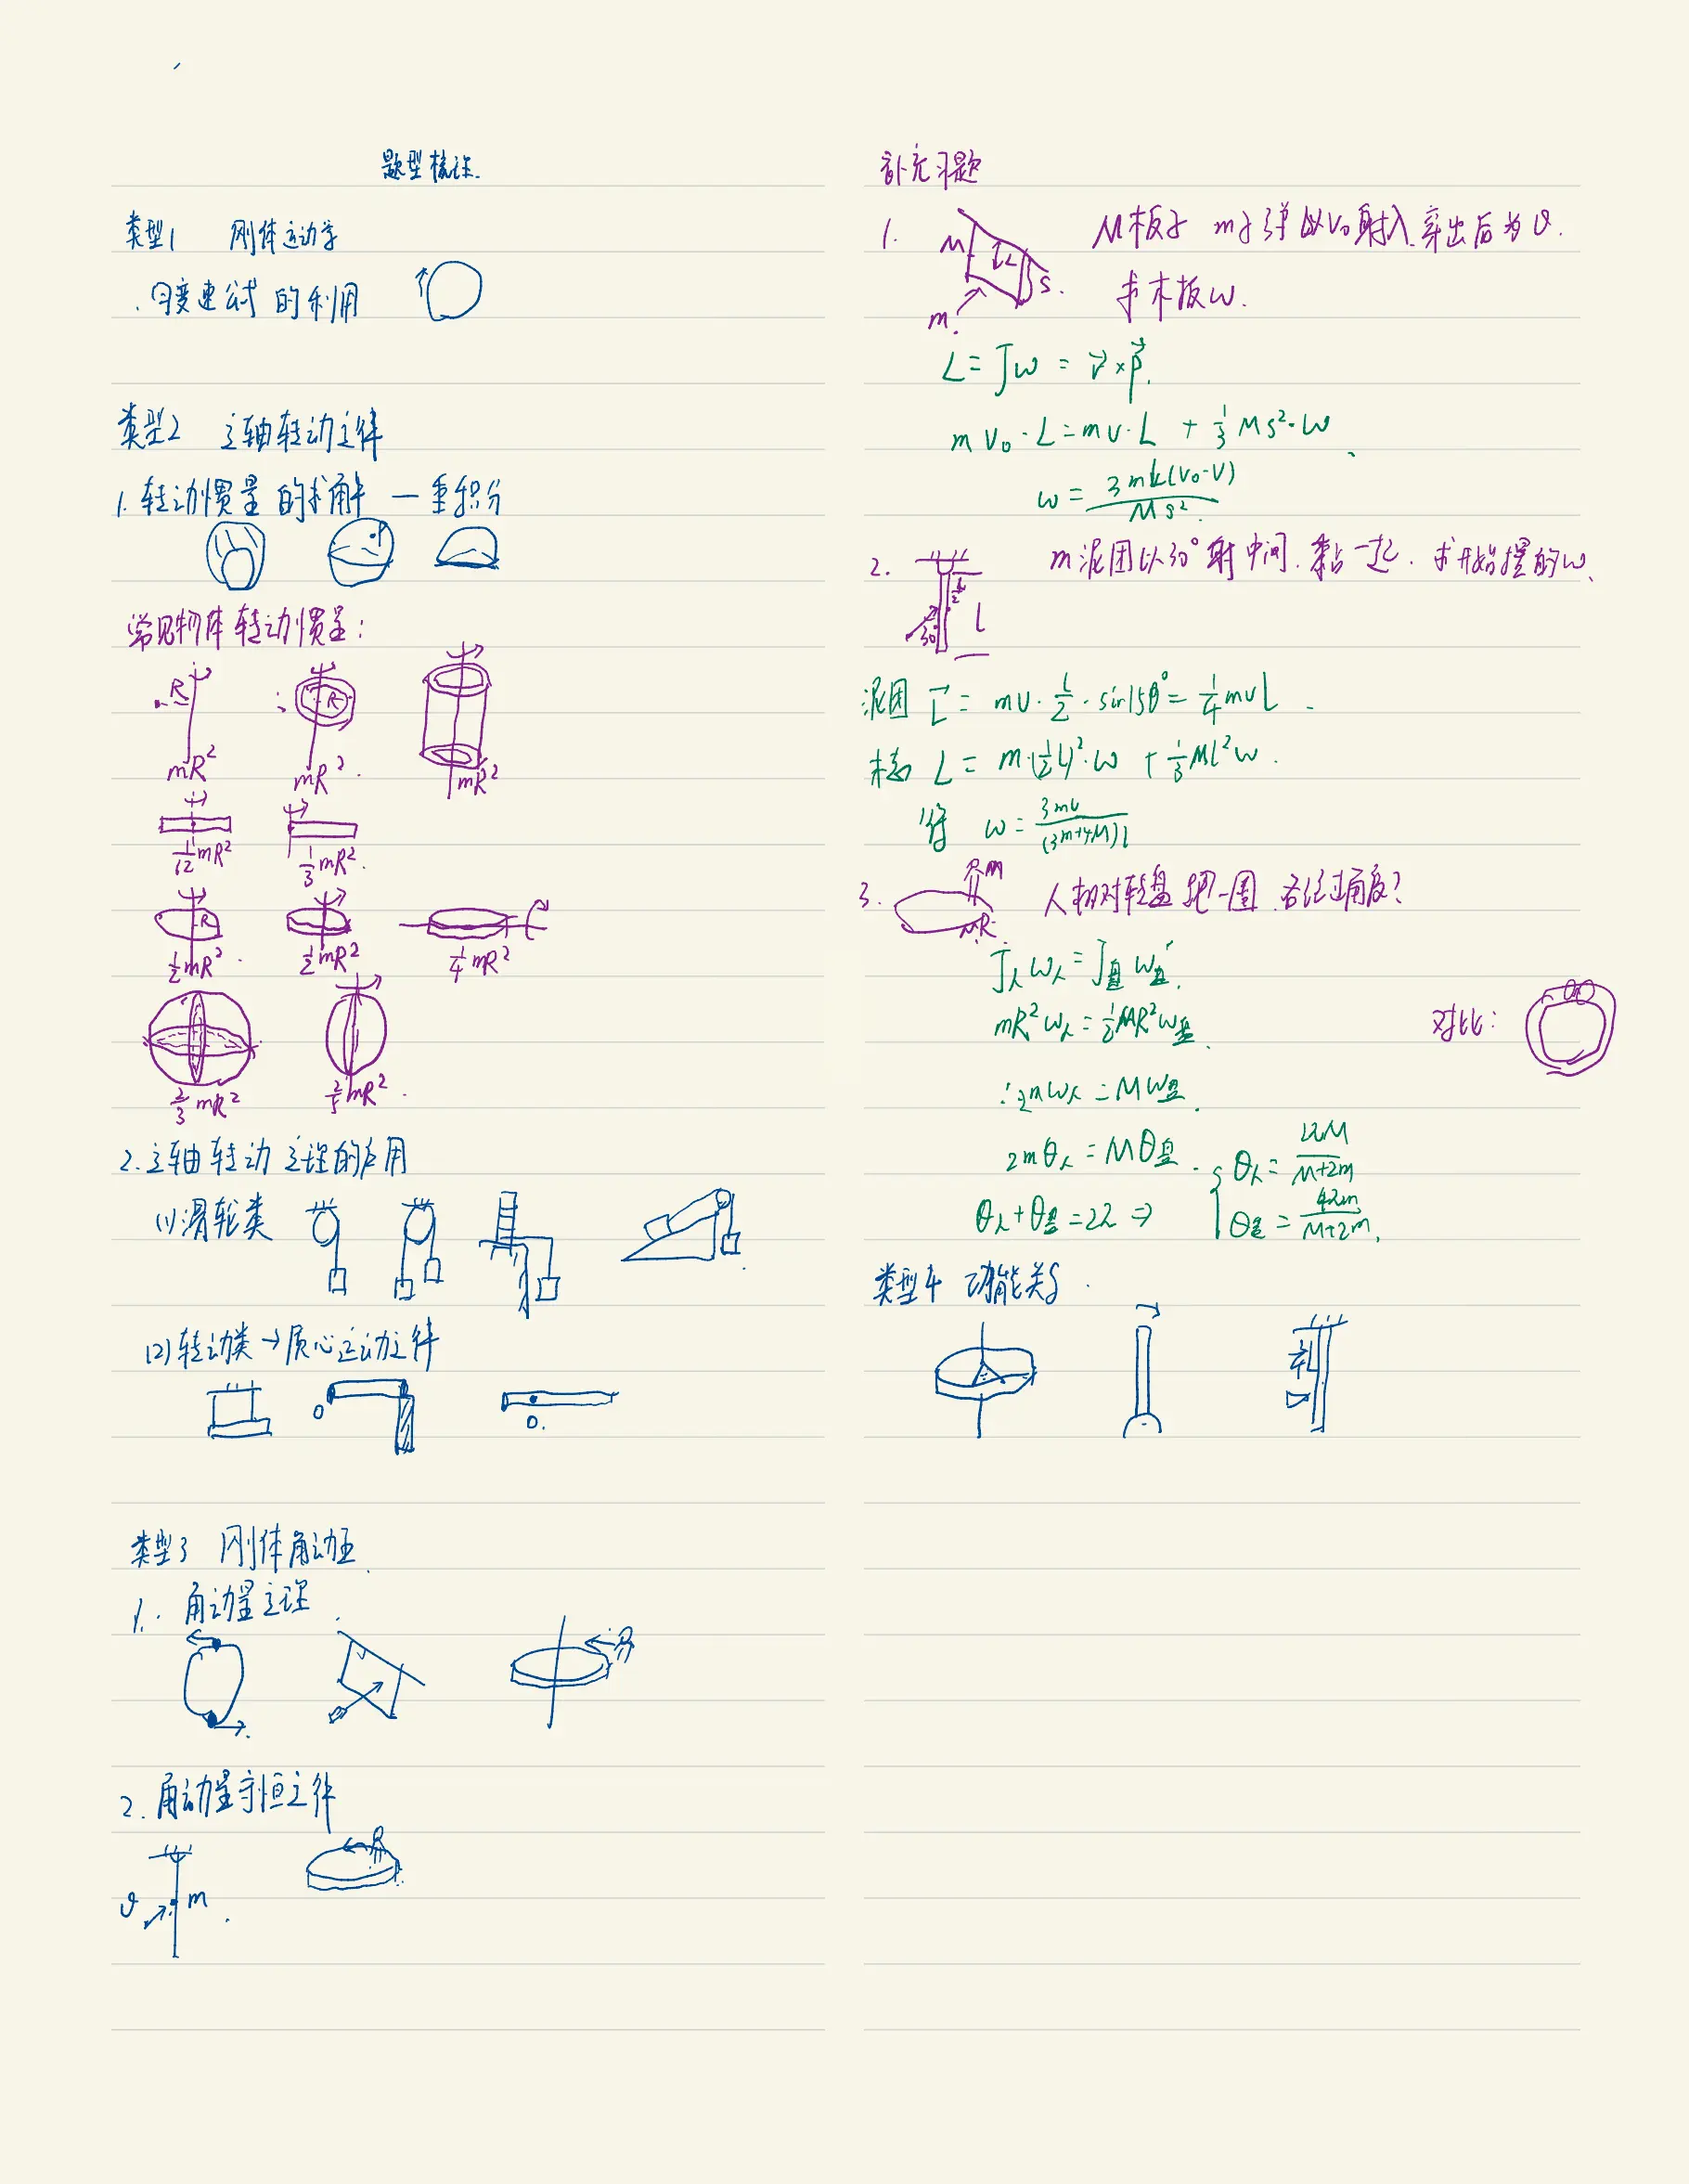 题型梳理.
类型1 刚体运动学
.匀变速公式的利用
类型2 定轴转动定律
1.转动惯量的求解 一重积分
常见物体转动惯量:
R
R
mR²
mR².
mR²
1/12 mR²
1/3 mR².
R
1/2 mR².
1/2 mR²
1/4 mR²
2/3 mR²
2/5 mR².
2.定轴转动定理的应用
(1)滑轮类
(2)转动类→质心运动定律
O
O.
类型3 刚体角动量
1. 角动量定理
2.角动量守恒定律
v m
补充习题
1. M板子 m子弹以v₀射入.穿出后为v.
M L S.
m.
求木板ω.
L = Jω = r⃗×p⃗.
mv₀·L = mv·L + 1/3 Ms²·ω
ω = 3mL(v₀-v)/Ms².
2. m泥团以30°射中间.黏一起.求开始摆的ω.
L/2
30° L
泥团 L⃗ = mv·L/2·sin150° = 1/4 mvL.
木棒 L = m·(1/2 L)²·ω + 1/3 Ml²ω.
得 ω = 3mv/(3m+4M)l
3. m
M.R.
人相对转盘跑一圈.各经过角度?
J人ω人 = J盘ω盘.
mR²ω人 = 1/2 MR²ω盘.
∴2mω人 = Mω盘.
对比:
2mθ人 = Mθ盘.
θ人+θ盘 = 2π ⇒ { θ人 = 2πM/M+2m
θ盘 = 4πm/M+2m.
类型4 功能关系.